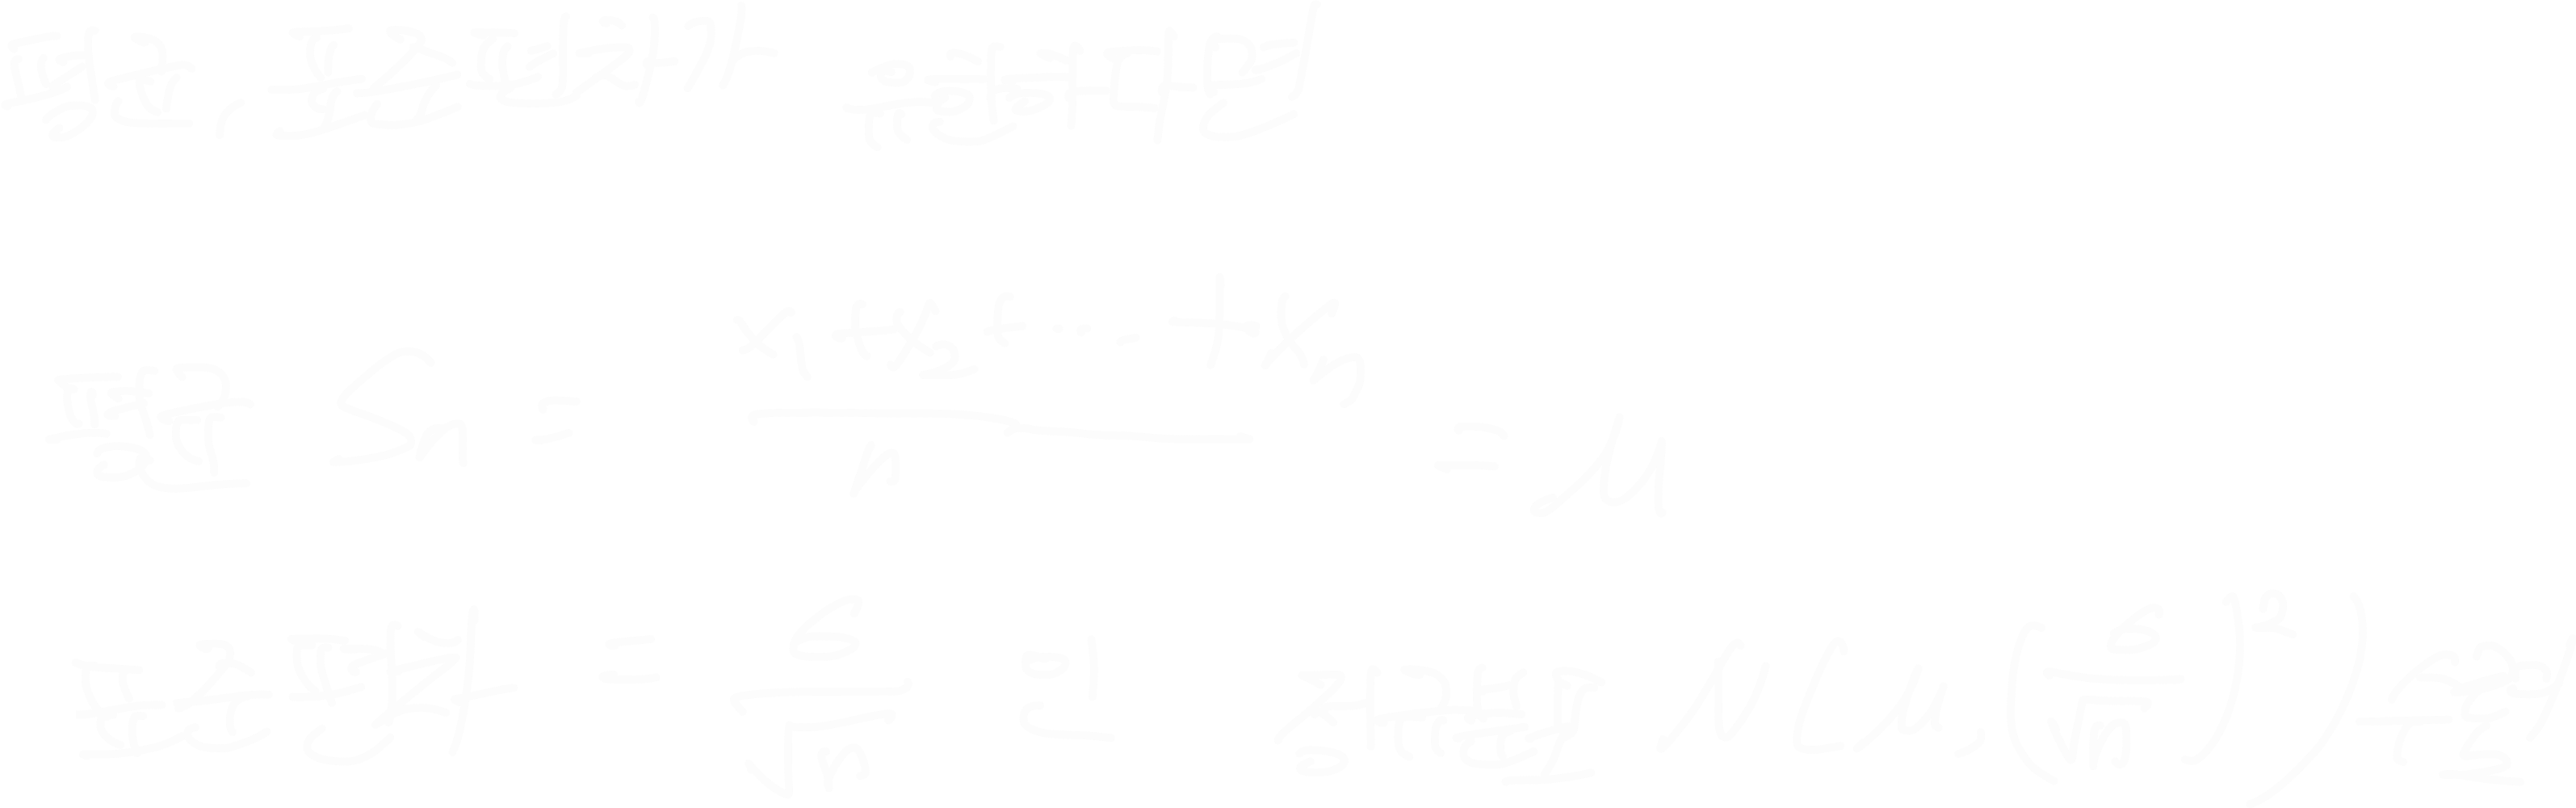 평균, 표준편차가 유한하다면
평균 Sn = (x₁+x₂+...+xn)/n = μ
표준편차 = σ/√n 인 정규분포 N(μ, (σ/√n)²) 수렴